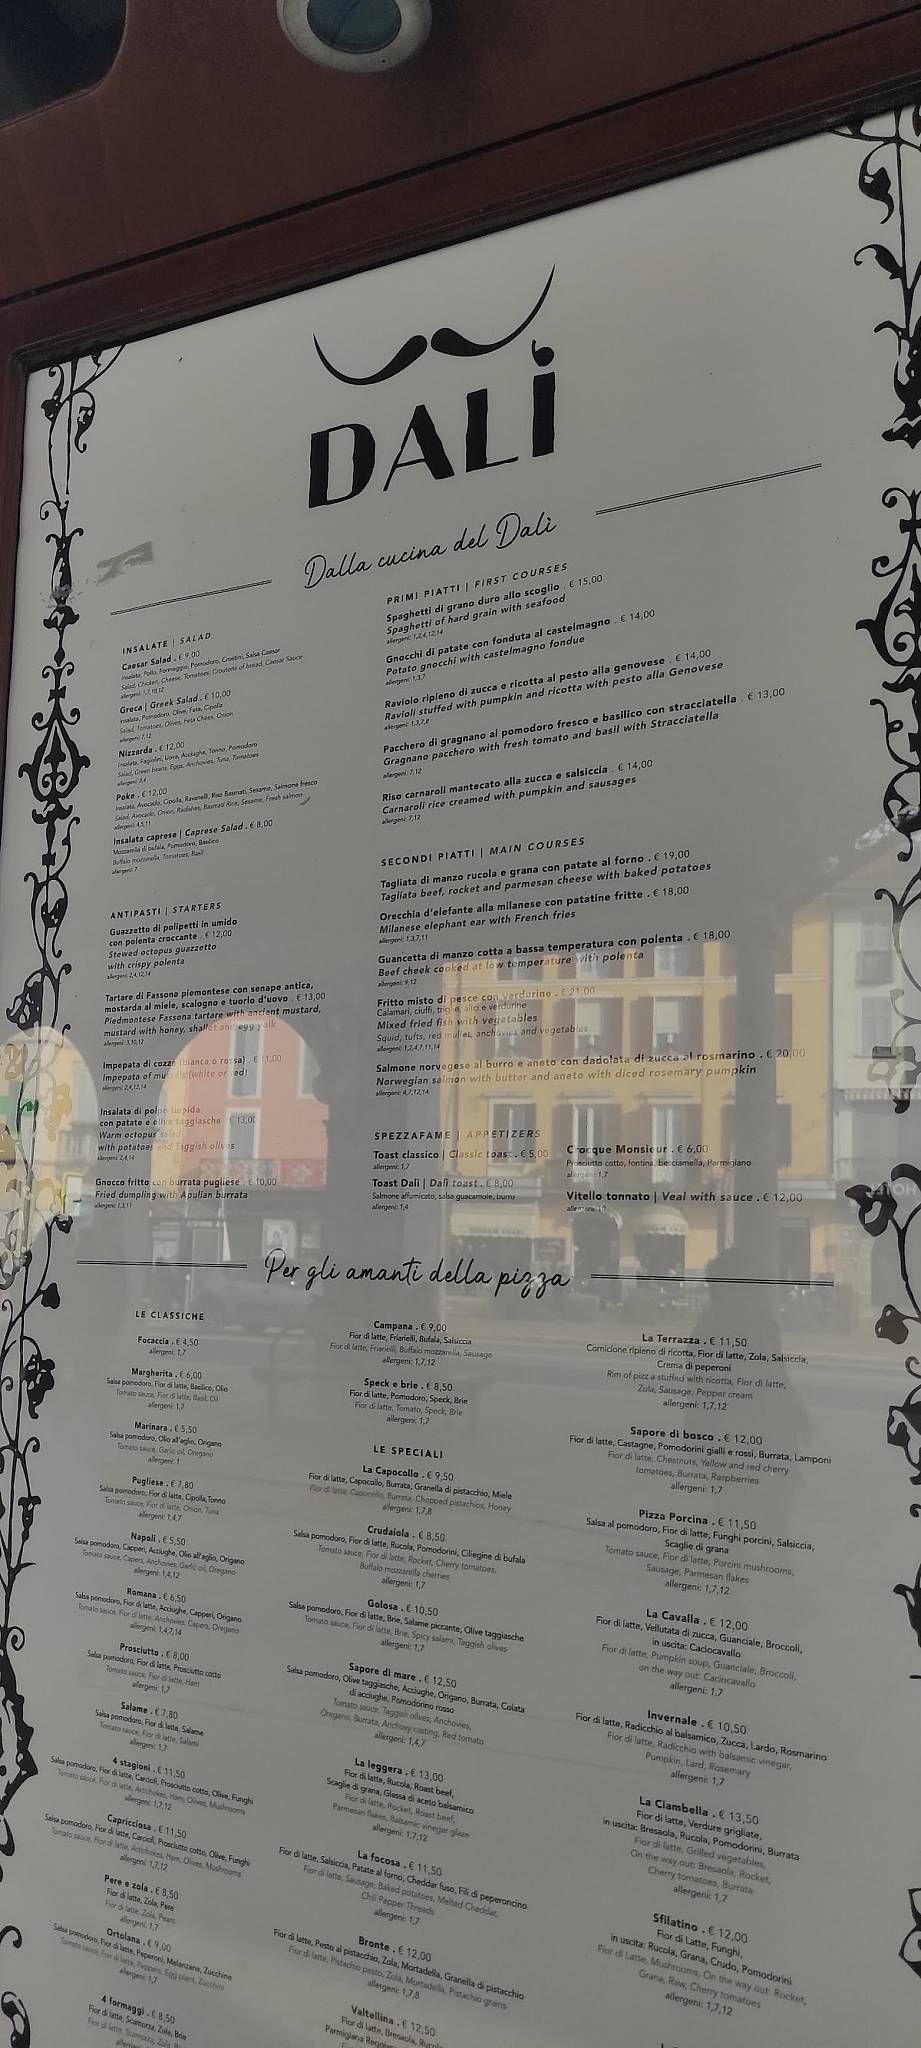 DALÌ
Dalla cucina del Dalì
INSALATE | SALAD
Caesar Salad . € 9,00
Insalata, Pollo, Formaggio, Pomodoro, Crostini, Salsa Caesar
Salad, Chicken, Cheese, Tomatoes, Croutons of bread, Caesar Sauce
allergeni: 1,7,10,12
Greca | Greek Salad . € 10,00
Insalata, Pomodoro, Olive, Feta, Cipolla
Salad, Tomatoes, Olives, Feta Chees, Onion
allergeni: 7,12
Nizzarda . € 12,00
Insalata, Fagiolini, Uova, Acciughe, Tonno, Pomodoro
Salad, Green beans, Eggs, Anchovies, Tuna, Tomatoes
allergeni: 3,4
Poke . € 12,00
Insalata, Avocado, Cipolla, Ravanelli, Riso Basmati, Sesamo, Salmone fresco
Salad, Avocado, Onion, Radishes, Basmati Rice, Sesame, Fresh salmon
allergeni: 4,5,11
Insalata caprese | Caprese Salad . € 8,00
Mozzarella di bufala, Pomodoro, Basilico
Buffalo mozzarella, Tomatoes, Basil
allergeni: 7
ANTIPASTI | STARTERS
Guazzetto di polipetti in umido
con polenta croccante . € 12,00
Stewed octopus guazzetto
with crispy polenta
allergeni: 2,4,12,14
Tartare di Fassona piemontese con senape antica,
mostarda al miele, scalogno e tuorlo d'uovo . € 13,00
Piedmontese Fassona tartare with ancient mustard,
mustard with honey, shallot and egg yolk
allergeni: 3,10,12
Impepata di cozze (bianca o rossa) . € 11,00
Impepata of mussels (white or red)
allergeni: 2,4,12,14
Insalata di polpo tiepida
con patate e olive taggiasche . € 13,00
Warm octopus salad
with potatoes and Taggish olives
allergeni: 2,4,14
Gnocco fritto con burrata pugliese . € 10,00
Fried dumpling with Apulian burrata
allergeni: 1,3,11
PRIMI PIATTI | FIRST COURSES
Spaghetti di grano duro allo scoglio . € 15,00
Spaghetti of hard grain with seafood
allergeni: 1,2,4,12,14
Gnocchi di patate con fonduta al castelmagno . € 14,00
Potato gnocchi with castelmagno fondue
allergeni: 1,3,7
Raviolo ripieno di zucca e ricotta al pesto alla genovese . € 14,00
Ravioli stuffed with pumpkin and ricotta with pesto alla Genovese
allergeni: 1,3,7,8
Pacchero di gragnano al pomodoro fresco e basilico con stracciatella . € 13,00
Gragnano pacchero with fresh tomato and basil with Stracciatella
allergeni: 7,12
Riso carnaroli mantecato alla zucca e salsiccia . € 14,00
Carnaroli rice creamed with pumpkin and sausages
allergeni: 7,12
SECONDI PIATTI | MAIN COURSES
Tagliata di manzo rucola e grana con patate al forno . € 19,00
Tagliata beef, rocket and parmesan cheese with baked potatoes
Orecchia d'elefante alla milanese con patatine fritte . € 18,00
Milanese elephant ear with French fries
allergeni: 1,3,7,11
Guancetta di manzo cotta a bassa temperatura con polenta . € 18,00
Beef cheek cooked at low temperature with polenta
allergeni: 9,12
Fritto misto di pesce con verdurine . € 21,00
Calamari, ciuffi, triglie, alici e verdurine
Mixed fried fish with vegetables
Squid, tufts, red mulles, anchovies and vegetables
allergeni: 1,2,4,7,11,14
Salmone norvegese al burro e aneto con dadolata di zucca al rosmarino . € 20,00
Norwegian salmon with butter and aneto with diced rosemary pumpkin
allergeni: 4,7,12,14
SPEZZAFAME | APPETIZERS
Toast classico | Classic toast . € 5,00
allergeni: 1,7
Toast Dalì | Dalì toast . € 8,00
Salmone affumicato, salsa guacamole, burro
allergeni: 1,4
Crocque Monsieur . € 6,00
Prosciutto cotto, fontina, besciamella, Parmigiano
allergeni: 1,7
Vitello tonnato | Veal with sauce . € 12,00
Per gli amanti della pizza
LE CLASSICHE
Focaccia . € 4,50
allergeni: 1,7
Margherita . € 6,00
Salsa pomodoro, Fior di latte, Basilico, Olio
Tomato sauce, Fior di latte, Basil, Oil
allergeni: 1,7
Marinara . € 5,50
Salsa pomodoro, Olio all'aglio, Origano
Tomato sauce, Garlic oil, Oregano
allergeni: 1
Pugliese . € 7,80
Salsa pomodoro, Fior di latte, Cipolla,Tonno
Tomato sauce, Fior di latte, Onion, Tuna
allergeni: 1,4,7
Napoli . € 5,50
Salsa pomodoro, Capperi, Acciughe, Olio all'aglio, Origano
Tomato sauce, Capers, Anchovies, Garlic oil, Oregano
allergeni: 1,4,12
Romana . € 6,50
Salsa pomodoro, Fior di latte, Acciughe, Capperi, Origano
Tomato sauce, Fior di latte, Anchovies, Capers, Oregano
allergeni: 1,4,7,14
Prosciutto . € 8,00
Salsa pomodoro, Fior di latte, Prosciutto cotto
Tomato sauce, Fior di latte, Ham
allergeni: 1,7
Salame . € 7,80
Salsa pomodoro, Fior di latte, Salame
Tomato sauce, Fior di latte, Salami
allergeni: 1,7
4 stagioni . € 11,50
Salsa pomodoro, Fior di latte, Carciofi, Prosciutto cotto, Olive, Funghi
Tomato sauce, Fior di latte, Artichokes, Ham, Olives, Mushrooms
allergeni: 1,7,12
Capricciosa . € 11,50
Salsa pomodoro, Fior di latte, Carciofi, Prosciutto cotto, Olive, Funghi
Tomato sauce, Fior di latte, Artichokes, Ham, Olives, Mushrooms
allergeni: 1,7,12
Pere e zola . € 8,50
Fior di latte, Zola, Pere
Fior di latte, Zola, Pears
allergeni: 1,7
Ortolana . € 9,00
Salsa pomodoro, Fior di latte, Peperoni, Melanzane, Zucchine
Tomato sauce, Fior di latte, Peppers, Egg plant, Zucchini
allergeni: 1,7
4 formaggi . € 8,50
Fior di latte, Scamorza, Zola, Brie
Fior di latte, Scamorza, Zola, Brie
Campana . € 9,00
Fior di latte, Friarielli, Bufala, Salsiccia
Fior di latte, Friarielli, Buffalo mozzarella, Sausage
allergeni: 1,7,12
Speck e brie . € 8,50
Fior di latte, Pomodoro, Speck, Brie
Fior di latte, Tomato, Speck, Brie
allergeni: 1,7
LE SPECIALI
La Capocollo . € 9,50
Fior di latte, Capocollo, Burrata, Granella di pistacchio, Miele
Fior di latte, Capocollo, Burrata, Chopped pistachios, Honey
allergeni: 1,7,8
Crudaiola . € 8,50
Salsa pomodoro, Fior di latte, Rucola, Pomodorini, Ciliegine di bufala
Tomato sauce, Fior di latte, Rocket, Cherry tomatoes,
Buffalo mozzarella cherries
allergeni: 1,7
Golosa . € 10,50
Salsa pomodoro, Fior di latte, Brie, Salame piccante, Olive taggiasche
Tomato sauce, Fior di latte, Brie, Spicy salami, Taggish olives
allergeni: 1,7
Sapore di mare . € 12,50
Salsa pomodoro, Olive taggiasche, Acciughe, Origano, Burrata, Colata
di acciughe, Pomodorino rosso
Tomato sauce, Taggish olives, Anchovies,
Oregano, Burrata, Anchovy casting, Red tomato
allergeni: 1,4,7
La leggera . € 13,00
Fior di latte, Rucola, Roast beef,
Scaglie di grana, Glassa di aceto balsamico
Fior di latte, Rocket, Roast beef,
Parmesan flakes, Balsamic vinegar glaze
allergeni: 1,7,12
La focosa . € 11,50
Fior di latte, Salsiccia, Patate al forno, Cheddar fuso, Fili di peperoncino
Fior di latte, Sausage, Baked potatoes, Melted Cheddar,
Chili Pepper Threads
allergeni: 1,7
Bronte . € 12,00
Fior di latte, Pesto al pistacchio, Zola, Mortadella, Granella di pistacchio
Fior di latte, Pistachio pesto, Zola, Mortadella, Pistachio grains
allergeni: 1,7,8
Valtellina . € 12,50
Fior di latte, Bresaola,
Parmigiano
La Terrazza . € 11,50
Cornicione ripieno di ricotta, Fior di latte, Zola, Salsiccia,
Crema di peperoni
Rim of pizza stuffed with ricotta, Fior di latte,
Zola, Sausage, Pepper cream
allergeni: 1,7,12
Sapore di bosco . € 12,00
Fior di latte, Castagne, Pomodorini gialli e rossi, Burrata, Lamponi
Fior di latte, Chestnuts, Yellow and red cherry
tomatoes, Burrata, Raspberries
allergeni: 1,7
Pizza Porcina . € 11,50
Salsa al pomodoro, Fior di latte, Funghi porcini, Salsiccia,
Scaglie di grana
Tomato sauce, Fior di latte, Porcini mushrooms,
Sausage, Parmesan flakes
allergeni: 1,7,12
La Cavalla . € 12,00
Fior di latte, Vellutata di zucca, Guanciale, Broccoli,
in uscita: Caciocavallo
Fior di latte, Pumpkin soup, Guanciale, Broccoli,
on the way out: Caciocavallo
allergeni: 1,7
Invernale . € 10,50
Fior di latte, Radicchio al balsamico, Zucca, Lardo, Rosmarino
Fior di latte, Radicchio with balsamic vinegar,
Pumpkin, Lard, Rosemary
allergeni: 1,7
La Ciambella . € 13,50
Fior di latte, Verdure grigliate,
in uscita: Bresaola, Rucola, Pomodorini, Burrata
Fior di latte, Grilled vegetables,
On the way out: Bresaola, Rocket,
Cherry tomatoes, Burrata
allergeni: 1,7
Sfilatino . € 12,00
Fior di Latte, Funghi,
in uscita: Rucola, Grana, Crudo, Pomodorini
Fior di Latte, Mushrooms, On the way out: Rocket,
Grana, Raw, Cherry tomatoes
allergeni: 1,7,12